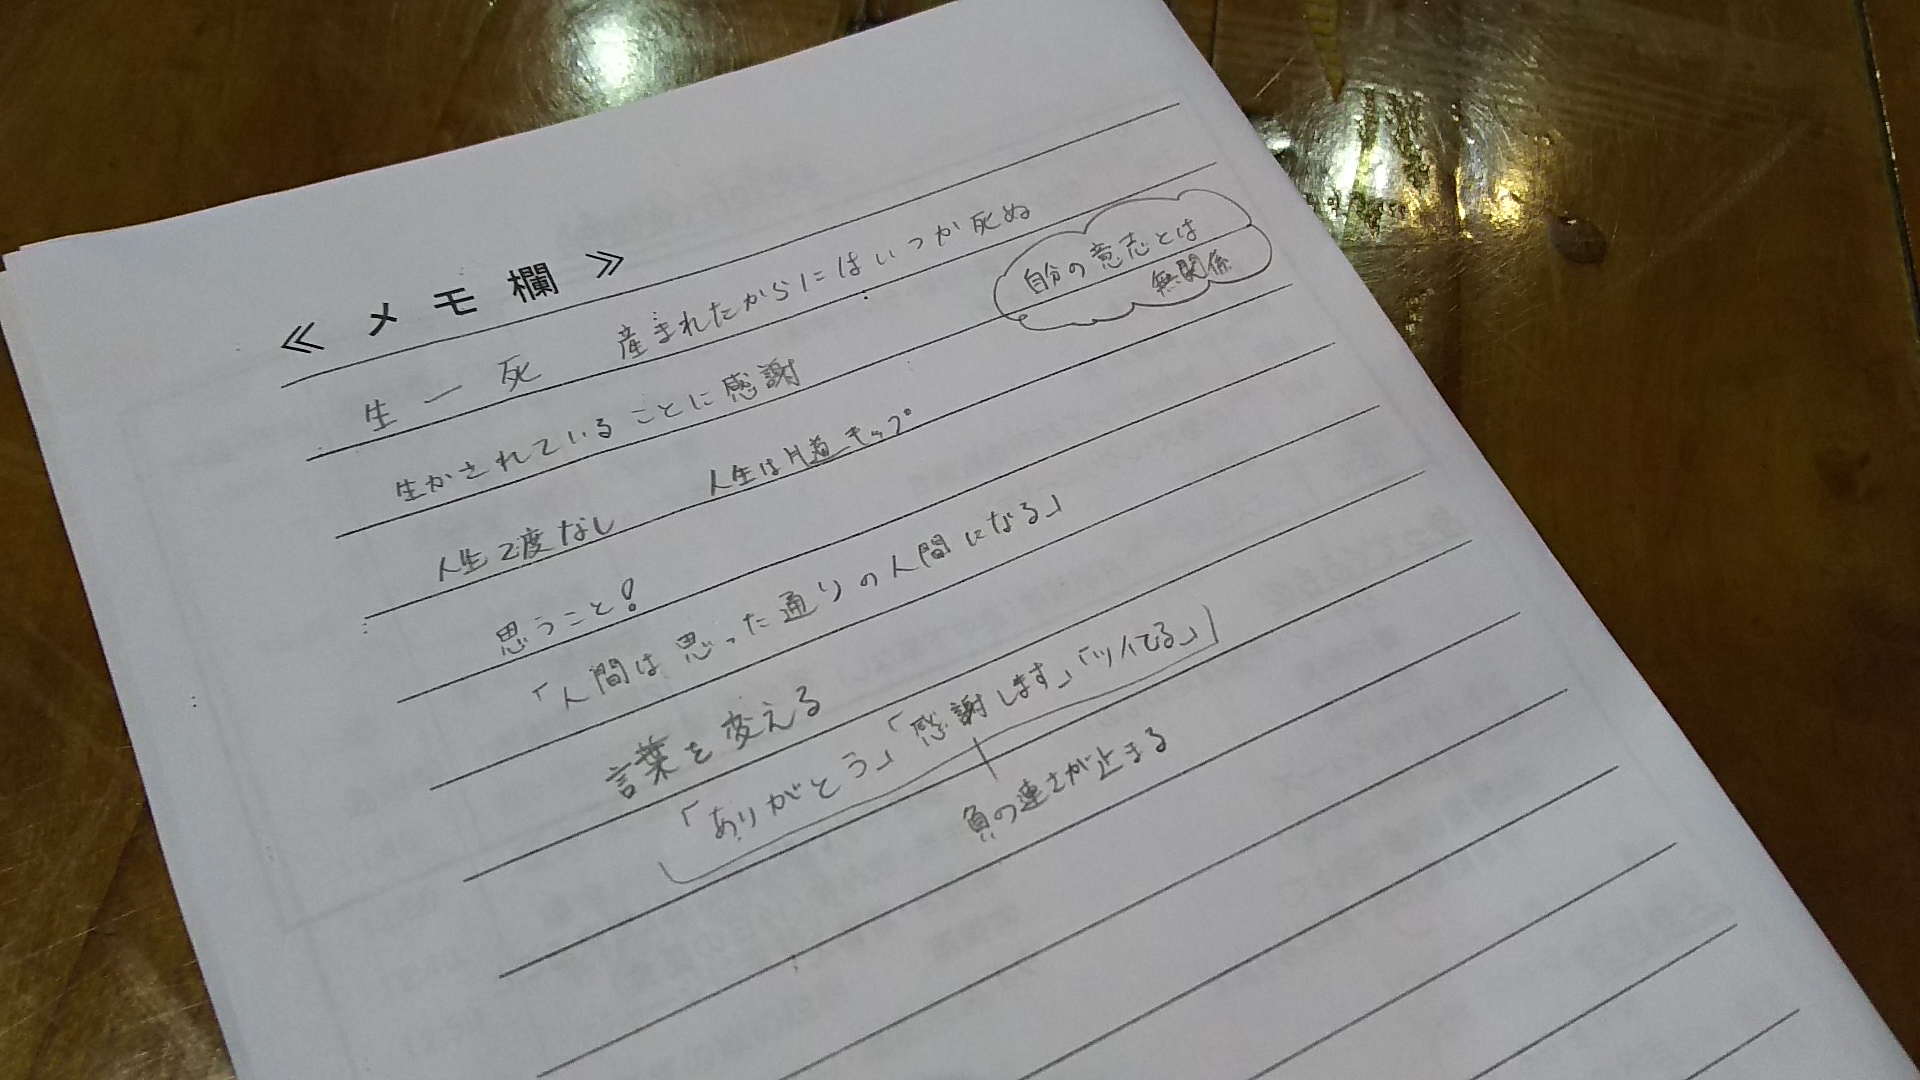 ≪ メモ欄 ≫
生 ー 死　産まれたからにはいつか死ぬ
自分の意志とは
無関係
生かされていることに感謝
人生2度なし　人生は片道キップ
思うこと!
「人間は思った通りの人間になる」
言葉を変える
「ありがとう」「感謝します」「ツイてる」
負の連さが止まる